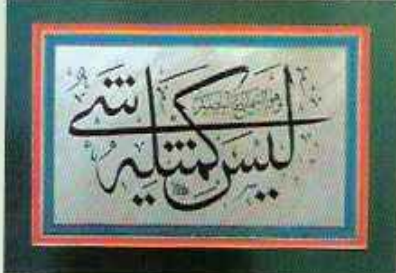 ليس كمثله شيء
وهو السميع البصير